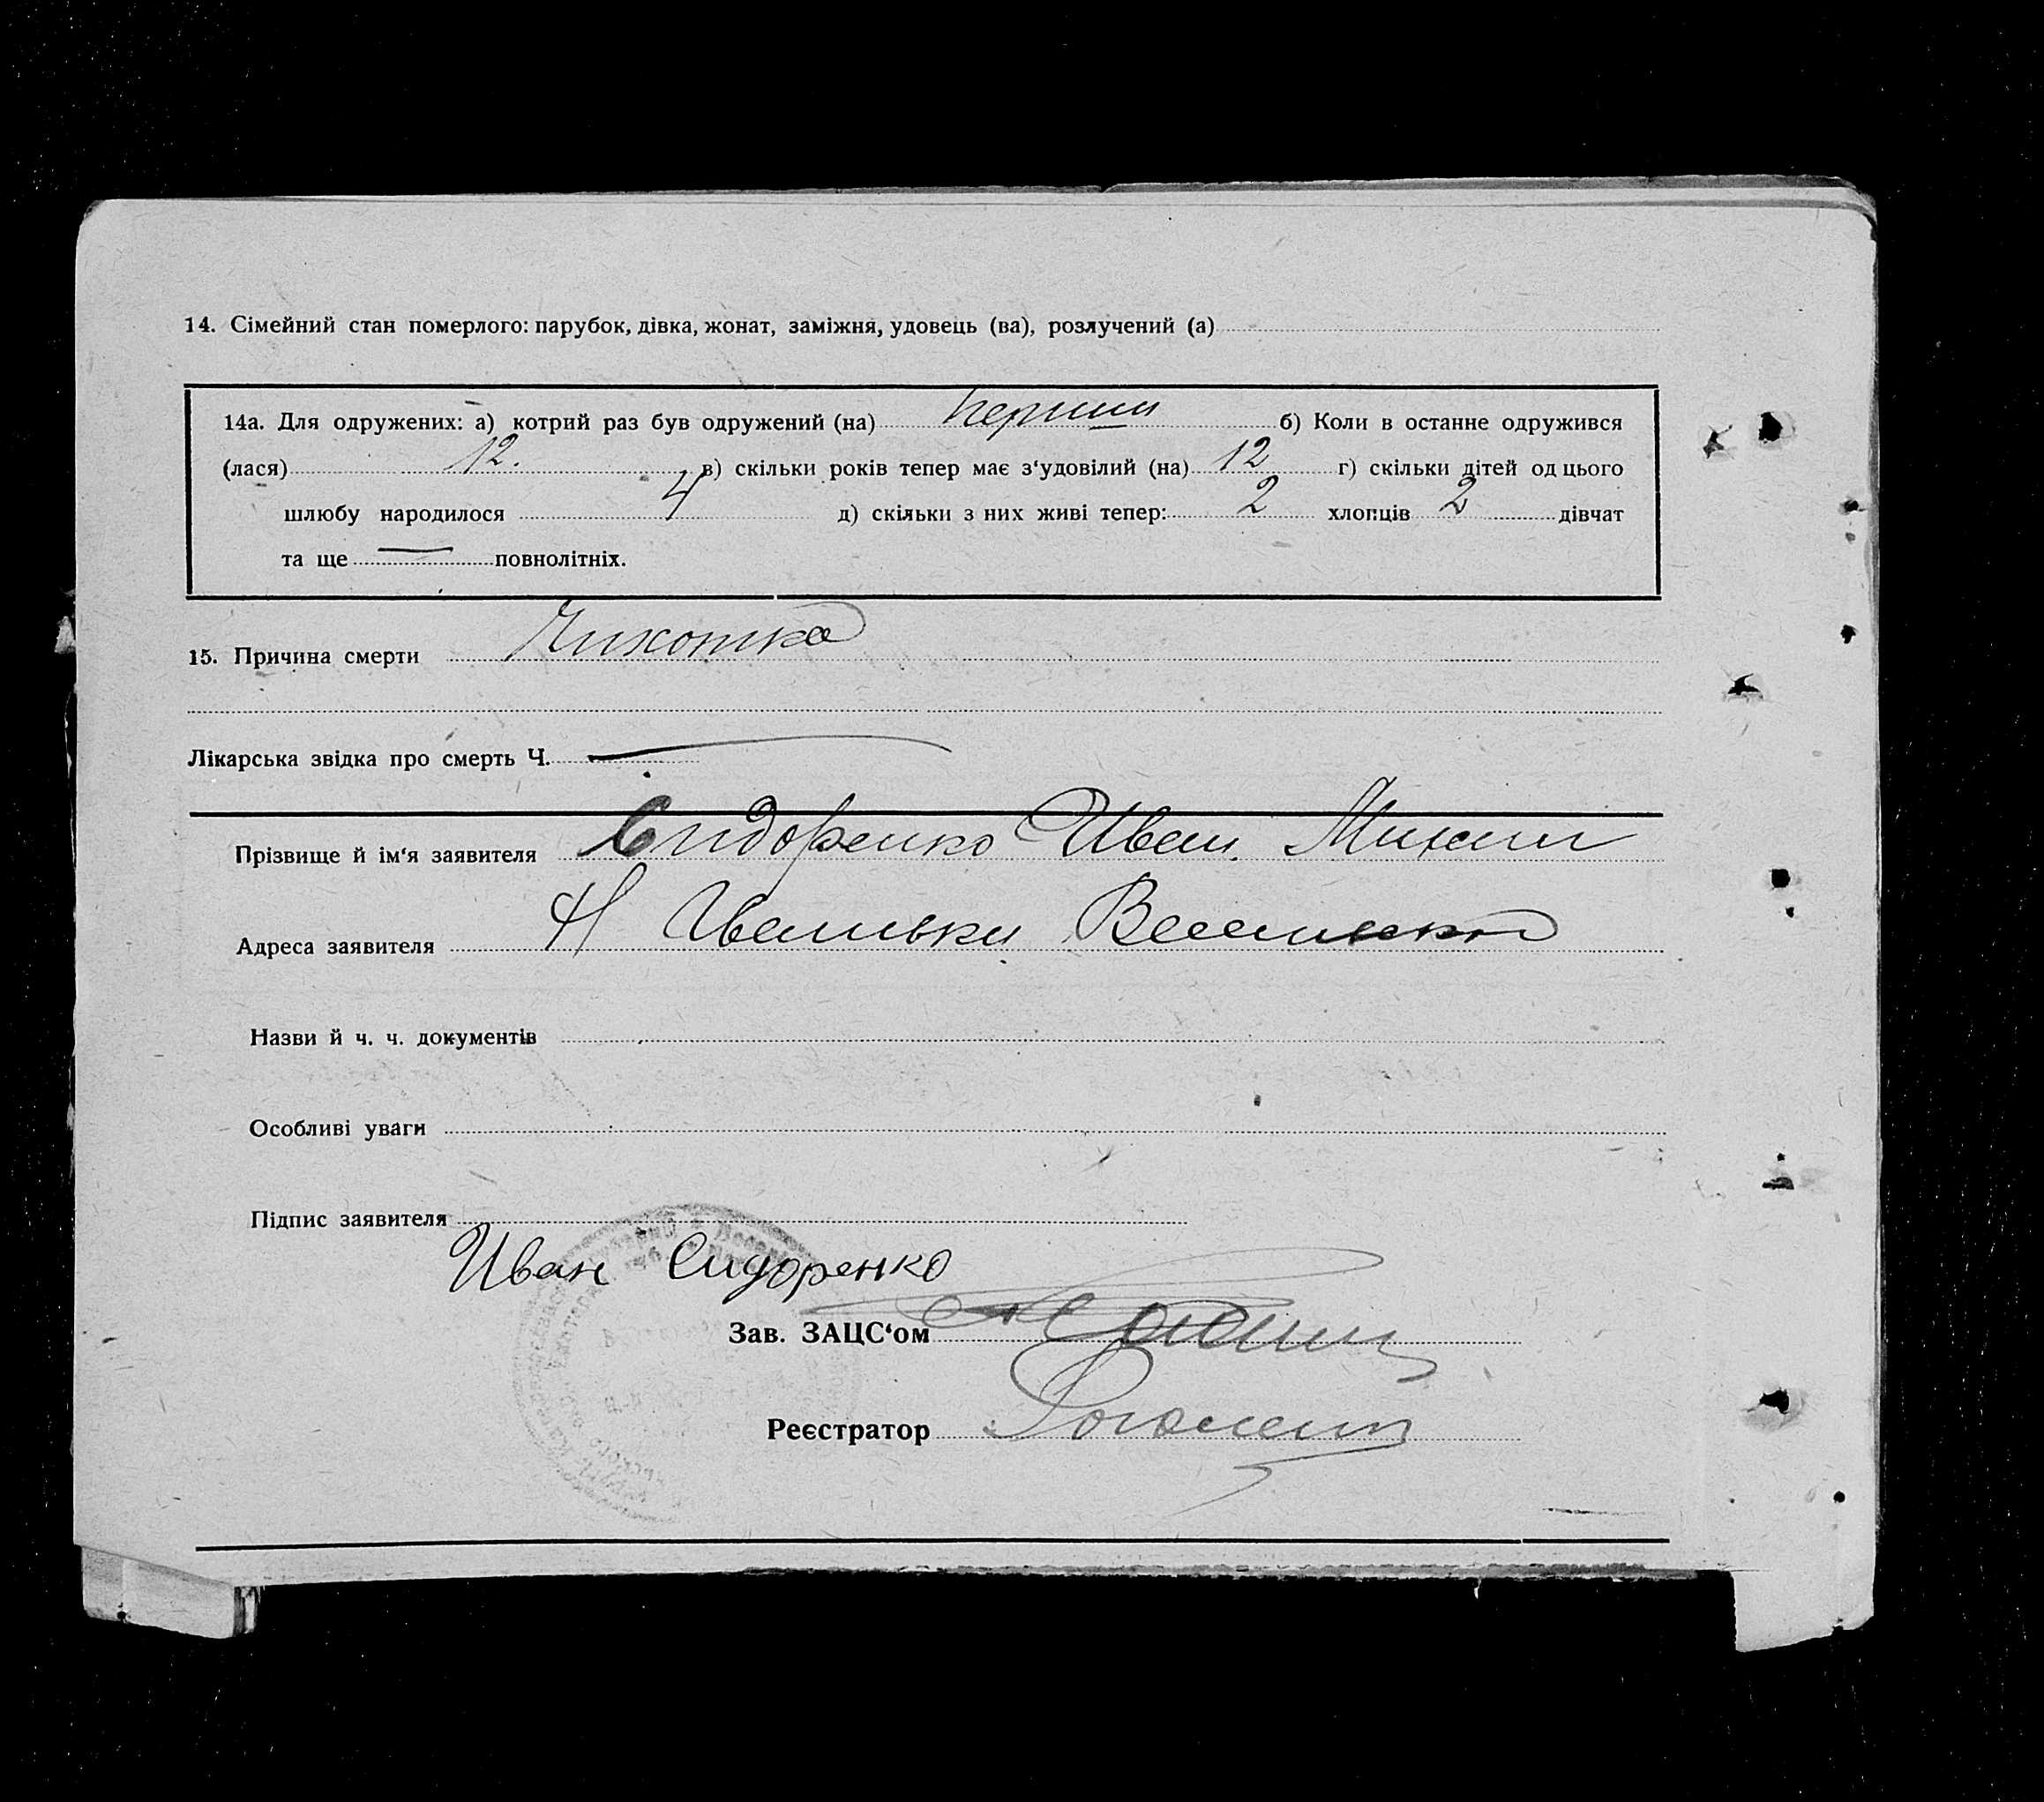 14. Сімейний стан померлого: парубок, дівка, жонат, заміжня, удовець (ва), розлучений (а)
14а. Для одружених: а) котрий раз був одружений (на) перший б) Коли в останне одружився
(лася) 12. в) скільки років тепер має з‘удовілий (на) 12 г) скільки дітей од цього
шлюбу народилося 4 д) скільки з них живі тепер: 2 хлопців 2 дівчат
та ще — повнолітніх.
15. Причина смерти Чихотка
Лікарська звідка про смерть Ч. —
Прізвище й ім‘я заявителя Сидоренко Иван. Михаил
Адреса заявителя Н
Назви й ч. ч. документів
Особливі уваги
Підпис заявителя
Иван Сидоренко
Зав. ЗАЦС‘ом
Реєстратор